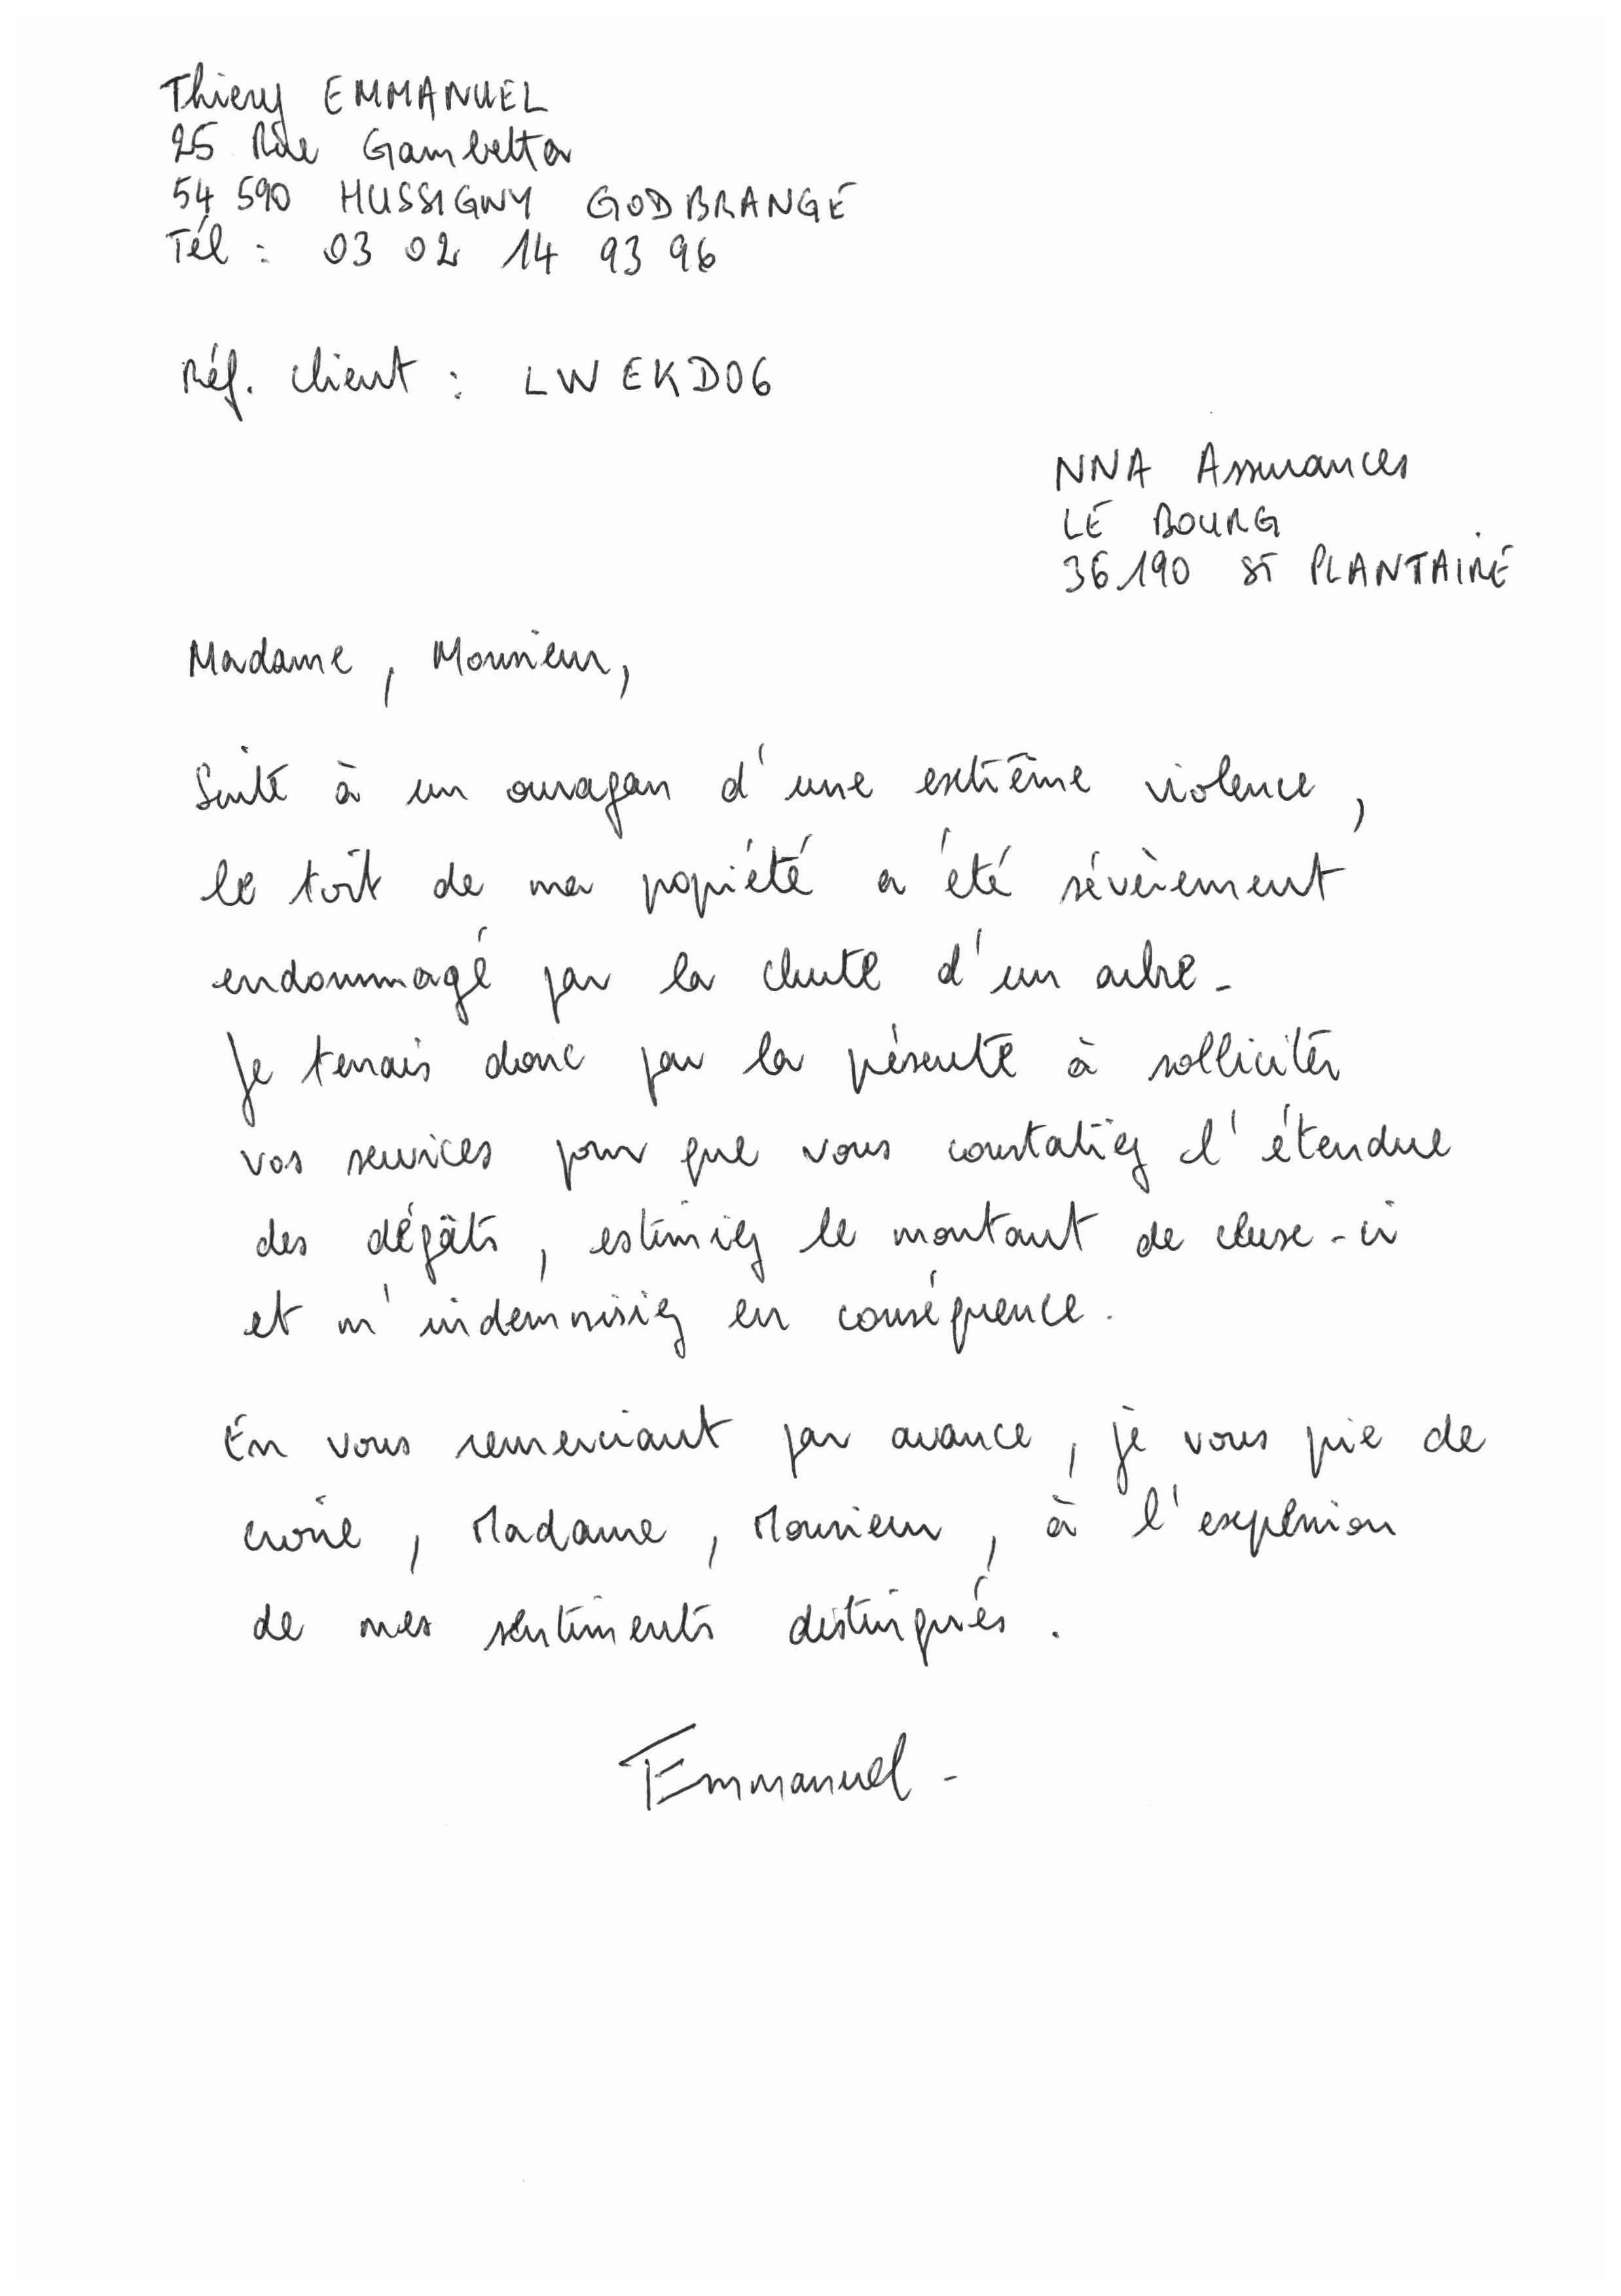 Thiery EMMANUEL
25 Rue Gambetta
54 590 HUSSIGNY GODBRANGE
Tél : 03 02 14 93 96
Réf. client : LWEKD06
NNA Assurances
LE BOURG
36190 ST PLANTAIRE
Madame, Monsieur,
Suite à un ouragan d'une extrême violence,
le toit de ma propriété a été sévèrement
endommagé par la chute d'un arbre.
Je tenais donc par la présente à solliciter
vos services pour que vous constatiez l'étendue
des dégâts, estimiez le montant de ceux-ci
et m'indemnisiez en conséquence.
En vous remerciant par avance, je vous prie de
croire, Madame, Monsieur, à l'expression
de mes sentiments distingués.
Emmanuel -